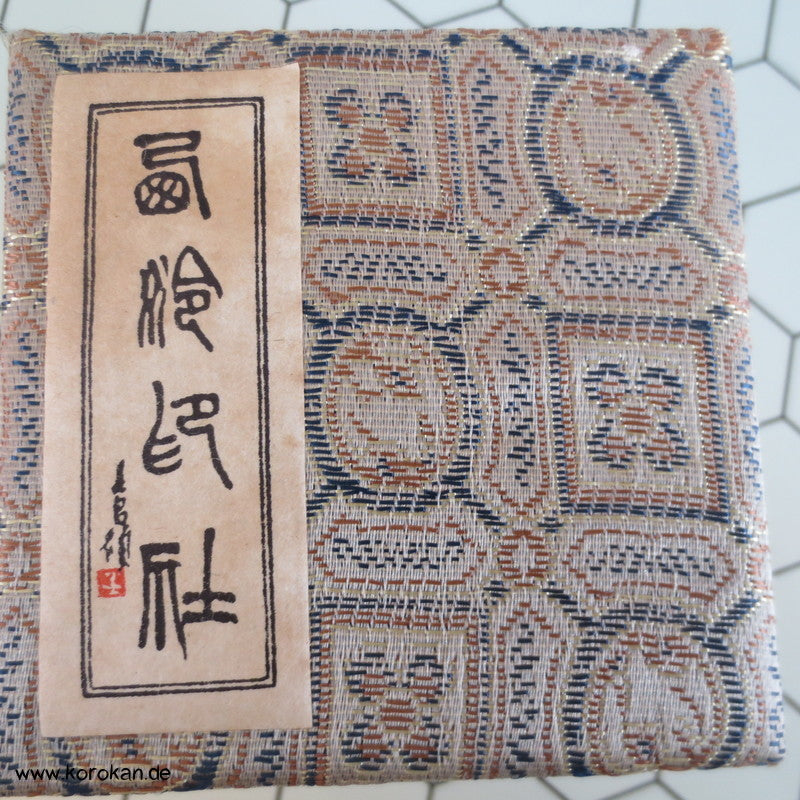 西泠印社
www.korokan.de